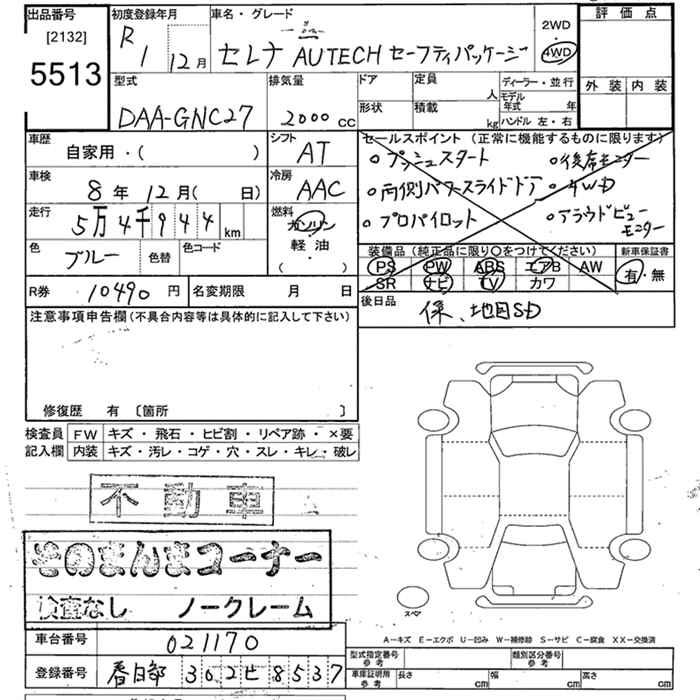 出品番号
[2132]
5513
初度登録年月
R 1 12月
車名・グレード
セレナ AUTECH セーフティパッケージ
2WD
4WD
評価点
外装 内装
型式
DAA-GNC27
排気量
2000 cc
ドア
形状
定員
人
積載
kg
ディーラー・並行
モデル
年式 年
ハンドル 左・右
車歴
自家用・( )
シフト
AT
車検
8年 12月( 日)
冷房
AAC
走行
5万4千944 km
燃料
ガソリン
軽油
・( )
色
ブルー
色替
色コード
R券 10490円
名変期限 月 日
セールスポイント (正常に機能するものに限ります)
○プッシュスタート ○後席モニター
○両側パワースライドドア ○4WD
○プロパイロット ○アラウンドビューモニター
装備品 (純正品に限り○をつけてください)
PS PW ABS エアB AW
SR ナビ TV カワ
新車保証書
有・無
後日品
保、地図SD
注意事項申告欄(不具合内容等は具体的に記入して下さい)
修復歴 有 〔箇所 〕
検査員 FW キズ・飛石・ヒビ割・リペア跡・×要
記入欄 内装 キズ・汚レ・コゲ・穴・スレ・キレ・破レ
不動車
そのまんまコーナー
検査なし ノークレーム
スペア
A-キズ E-エクボ U-凹み W-補修跡 S-サビ C-腐食 XX-交換済
車台番号 021170
登録番号 春日部 302 ヒ 8537
型式指定番号
参考
類別区分番号
参考
車庫証明用
参考
長さ cm 幅 cm 高さ cm